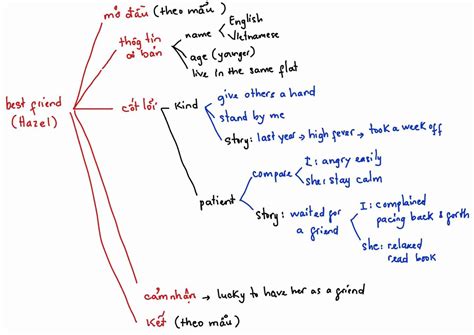 mở đầu (theo mẫu)
thông tin
cơ bản
name
English
Vietnamese
age (younger)
live in the same flat
best friend
(Hazel)
cốt lõi
kind
give others a hand
stand by me
story: last year → high fever → took a week off
patient
compare
I: angry easily
she: stay calm
story: waited for
a friend
I: complained
pacing back & forth
she: relaxed
read book
cảm nhận → lucky to have her as a friend
kết (theo mẫu)